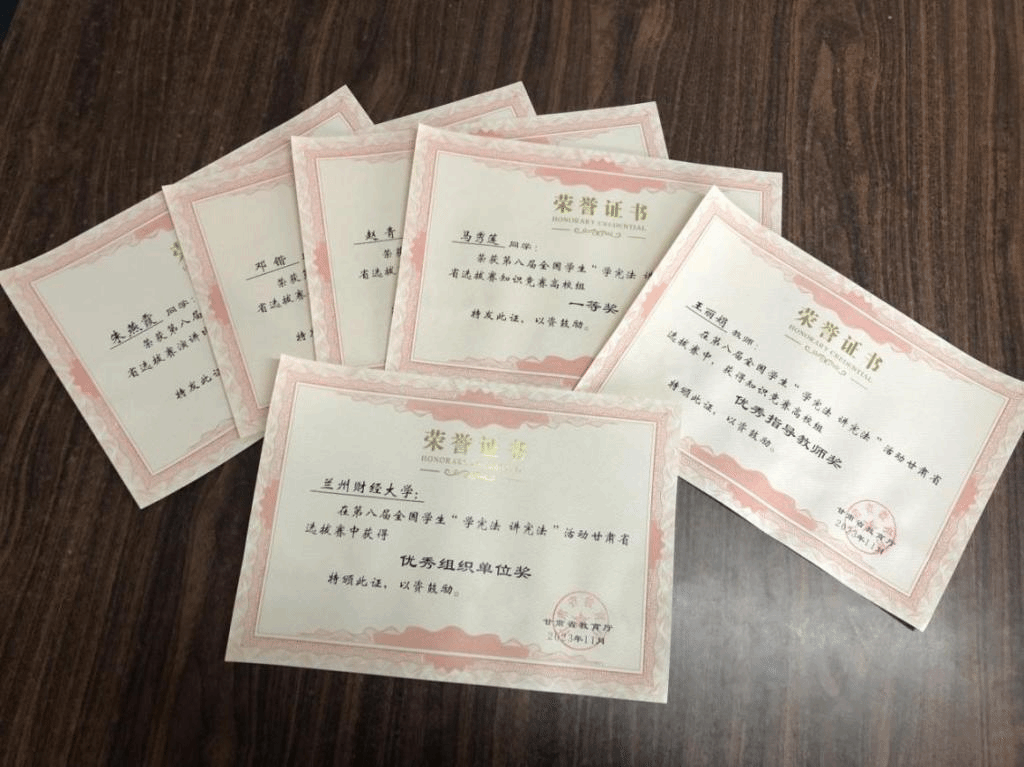 朱燕霞 同学：
荣获第八届
省选拔赛演讲
特发此证
邓锴
荣获
省选拔赛
特发
赵青
荣获
省选拔赛
特发
荣誉证书
HONORARY CREDENTIAL
马秀莲 同学：
荣获第八届全国学生“学宪法 讲
省选拔赛知识竞赛高校组
一等奖
特发此证，以资鼓励。
荣誉证书
HONORARY CREDENTIAL
王丽娟 教师：
在第八届全国学生“学宪法 讲宪法”活动甘肃省
选拔赛中，获得知识竞赛高校组
优秀指导教师奖
特颁此证，以资鼓励。
甘肃省教育厅
2023年11月
荣誉证书
HONORARY CREDENTIAL
兰州财经大学：
在第八届全国学生“学宪法 讲宪法”活动甘肃省
选拔赛中获得
优秀组织单位奖
特颁此证，以资鼓励。
甘肃省教育厅
2023年11月